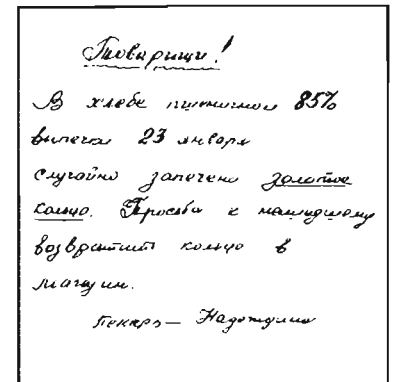 Товарищи!
В хлебе пшеничном 85%
выпечки 23 января
случайно запечено золотое
кольцо. Просьба к нашедшему
возвратить кольцо в
магазин.
пекарь —